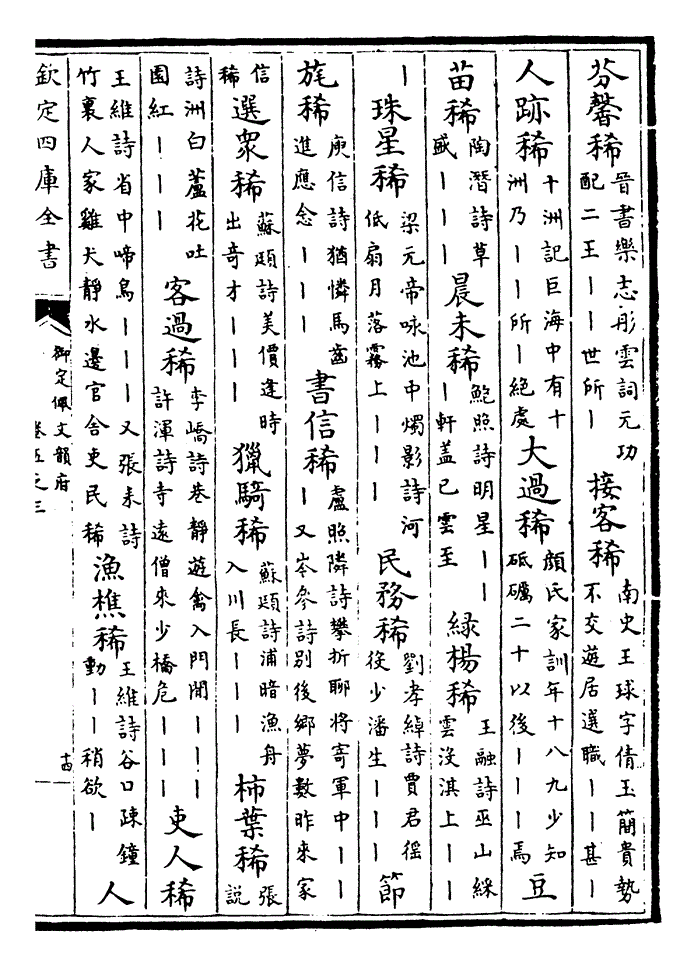 芬馨稀晉書樂志彤雲詞元功配二王丨丨世所丨　接客稀南史王球字倩玉簡貴勢不交遊居選職丨丨甚丨
人跡稀十洲記巨海中有十洲乃丨丨所丨絕處　大過稀顏氏家訓年十八九少知砥礪二十以後丨丨丨焉　豆
苗稀陶潛詩草盛丨丨丨　晨未稀鮑照詩明星丨丨丨軒盖已雲至　緑楊稀王融詩巫山綵雲沒淇上丨丨
丨　珠星稀梁元帝咏池中燭影詩河低扇月落霧上丨丨丨　民務稀劉孝綽詩賈君徭役少潘生丨丨丨　節
旄稀庾信詩猶憐馬齒進應念丨丨丨　書信稀盧照隣詩攀折聊將寄軍中丨丨丨又岑參詩别後鄉夢數昨來家
信稀　選衆稀蘇頲詩美價逢時出奇才丨丨丨　獵騎稀蘇頲詩浦暗漁舟入川長丨丨丨　柿葉稀張說
詩洲白蘆花吐園紅丨丨丨　客過稀李嶠詩巷靜遊禽入門閒丨丨丨許渾詩寺遠僧來少橋危丨丨丨　吏人稀
王維詩省中啼鳥丨丨丨又張耒詩竹裏人家雞犬靜水邊官舍吏民稀　漁樵稀王維詩谷口疎鐘動丨丨稍欲丨　人
欽定四庫全書　御定佩文韻府卷五之三　十四